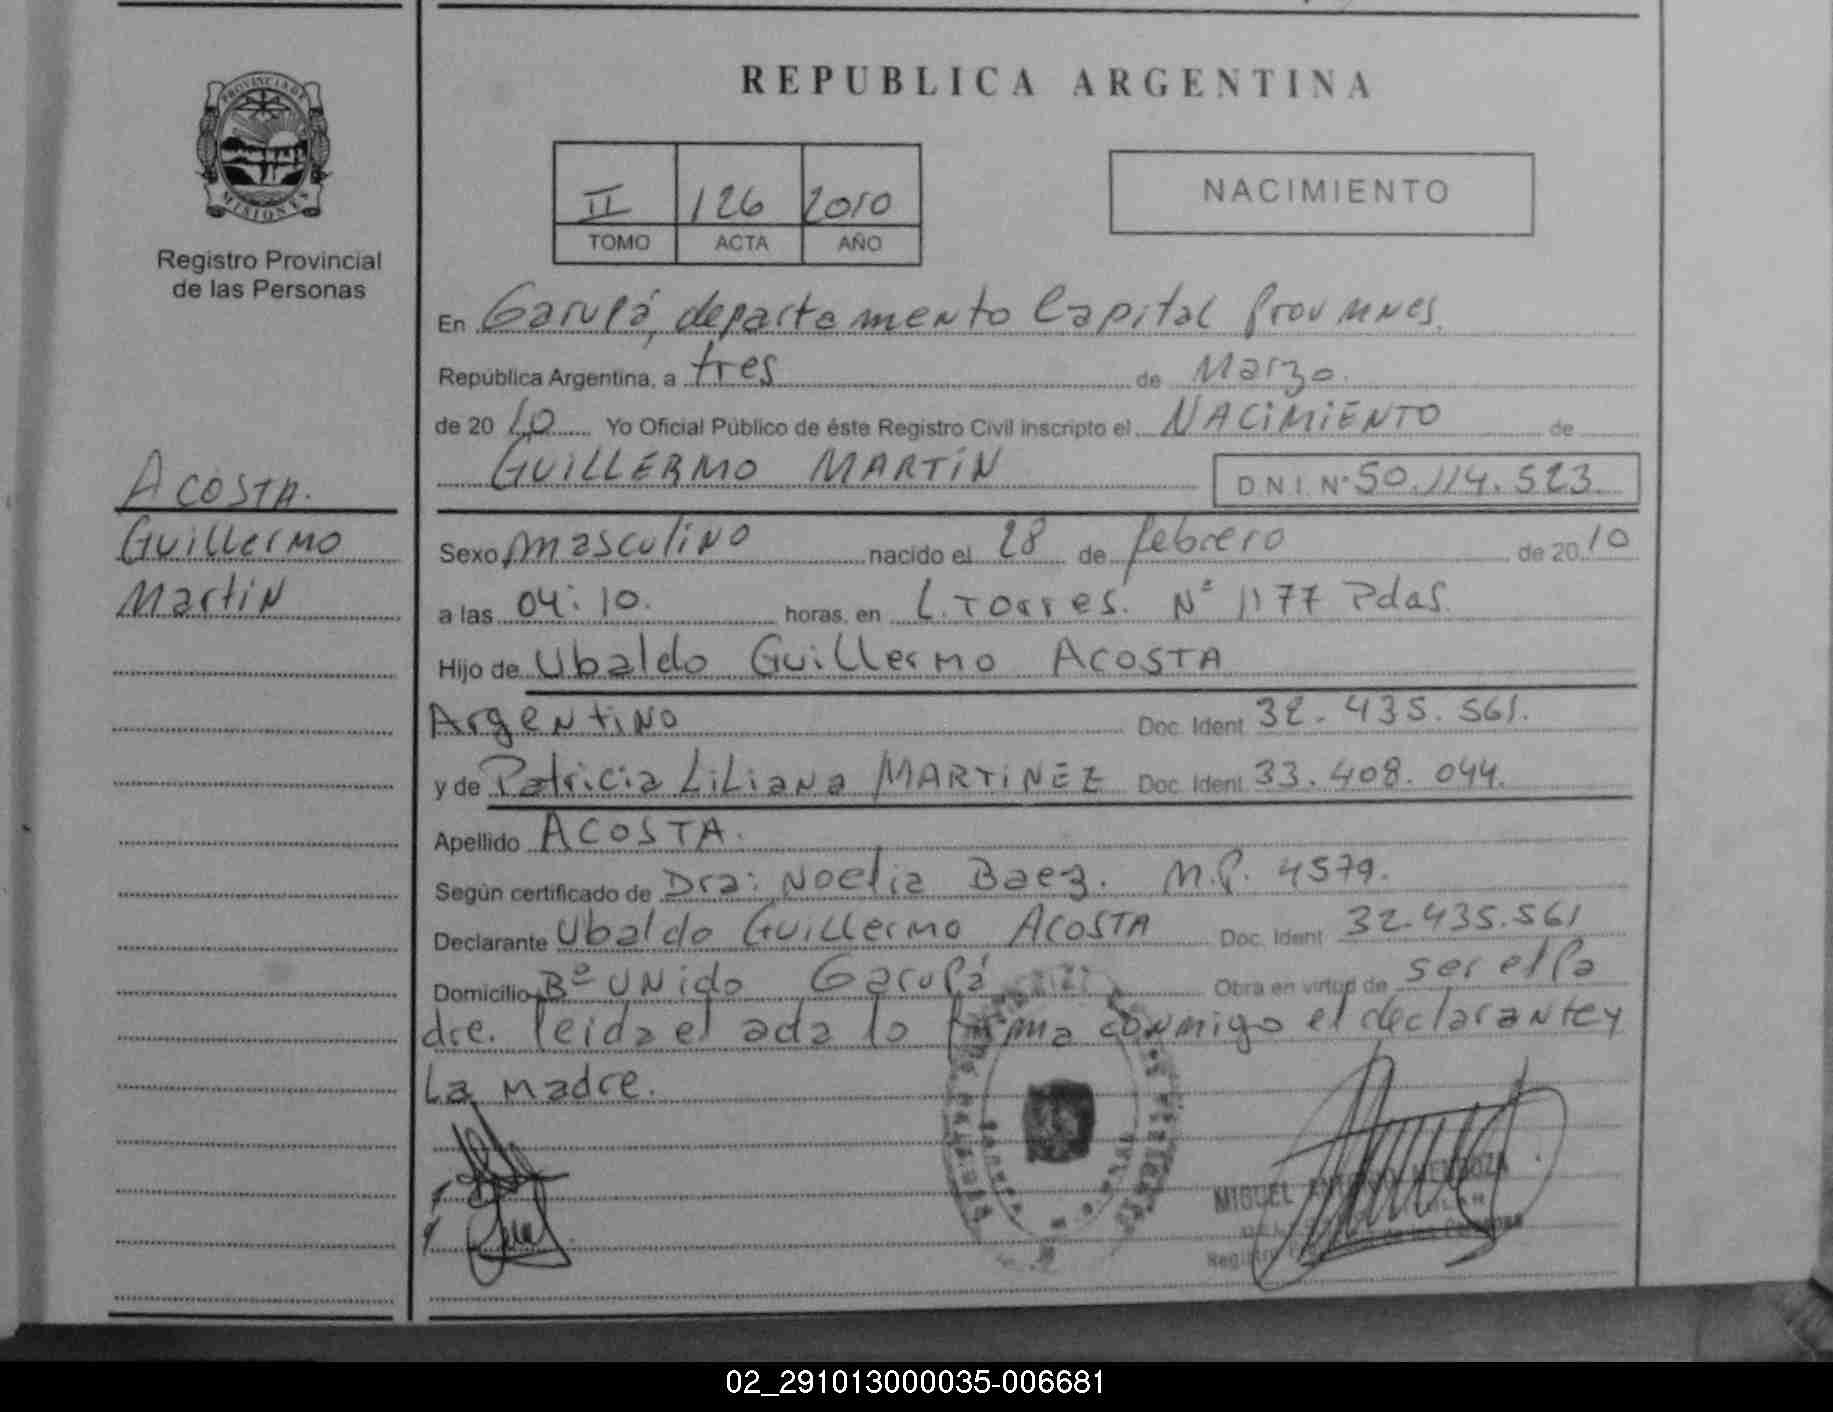 REPUBLICA ARGENTINA
PROVINCIA DE
MISIONES
Registro Provincial
de las Personas
II 126 2010
TOMO ACTA AÑO
NACIMIENTO
En Garupá, departamento Capital Prov Mnes.
República Argentina, a tres de Marzo.
de 20 10 Yo Oficial Público de éste Registro Civil inscripto el NACIMIENTO de
GUILLERMO MARTIN D.N.I. N° 50.114.523
ACOSTA.
Guillermo
Martin
Sexo masculino nacido el 28 de febrero de 20 10
a las 04:10. horas, en L. Torres. N° 1177 Pdas.
Hijo de Ubaldo Guillermo ACOSTA
Argentino Doc. Ident. 32.435.561.
y de Patricia Liliana MARTINEZ Doc. Ident. 33.408.044.
Apellido ACOSTA.
Según certificado de Dra: Noelia Baez. M.P. 4579.
Declarante Ubaldo Guillermo ACOSTA Doc. Ident. 32.435.561
Domicilio B° Unido Garupá Obra en virtud de ser el Pa
dre. leida el acta la firma conmigo el declarante y
La madre.
MIGUEL MENDOZA
02_291013000035-006681